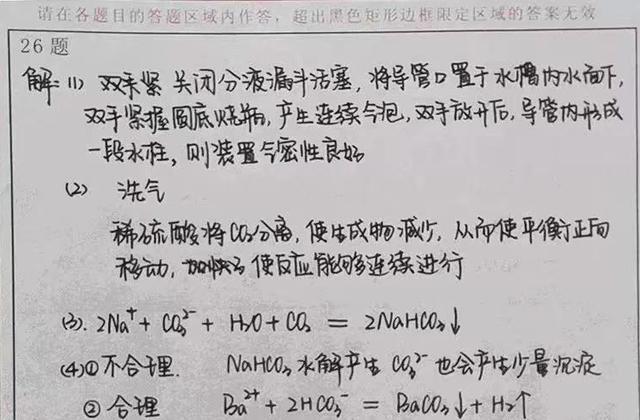 请在各题目的答题区域内作答，超出黑色矩形边框限定区域的答案无效
26题
解：(1) 双手紧 关闭分液漏斗活塞，将导管口置于水槽内水面下，
双手紧握圆底烧瓶，产生连续气泡，双手放开后，导管内形成
一段水柱，则装置气密性良好
(2) 洗气
稀硫酸将CO₂分离，使生成物减少，从而使平衡正向
移动，加快了 使反应能够连续进行
(3). 2Na⁺ + CO₃²⁻ + H₂O + CO₂ = 2NaHCO₃↓
(4)①不合理. NaHCO₃水解产生 CO₃²⁻ 也会产生少量沉淀
②合理 Ba²⁺ + 2HCO₃⁻ = BaCO₃↓ + H₂↑